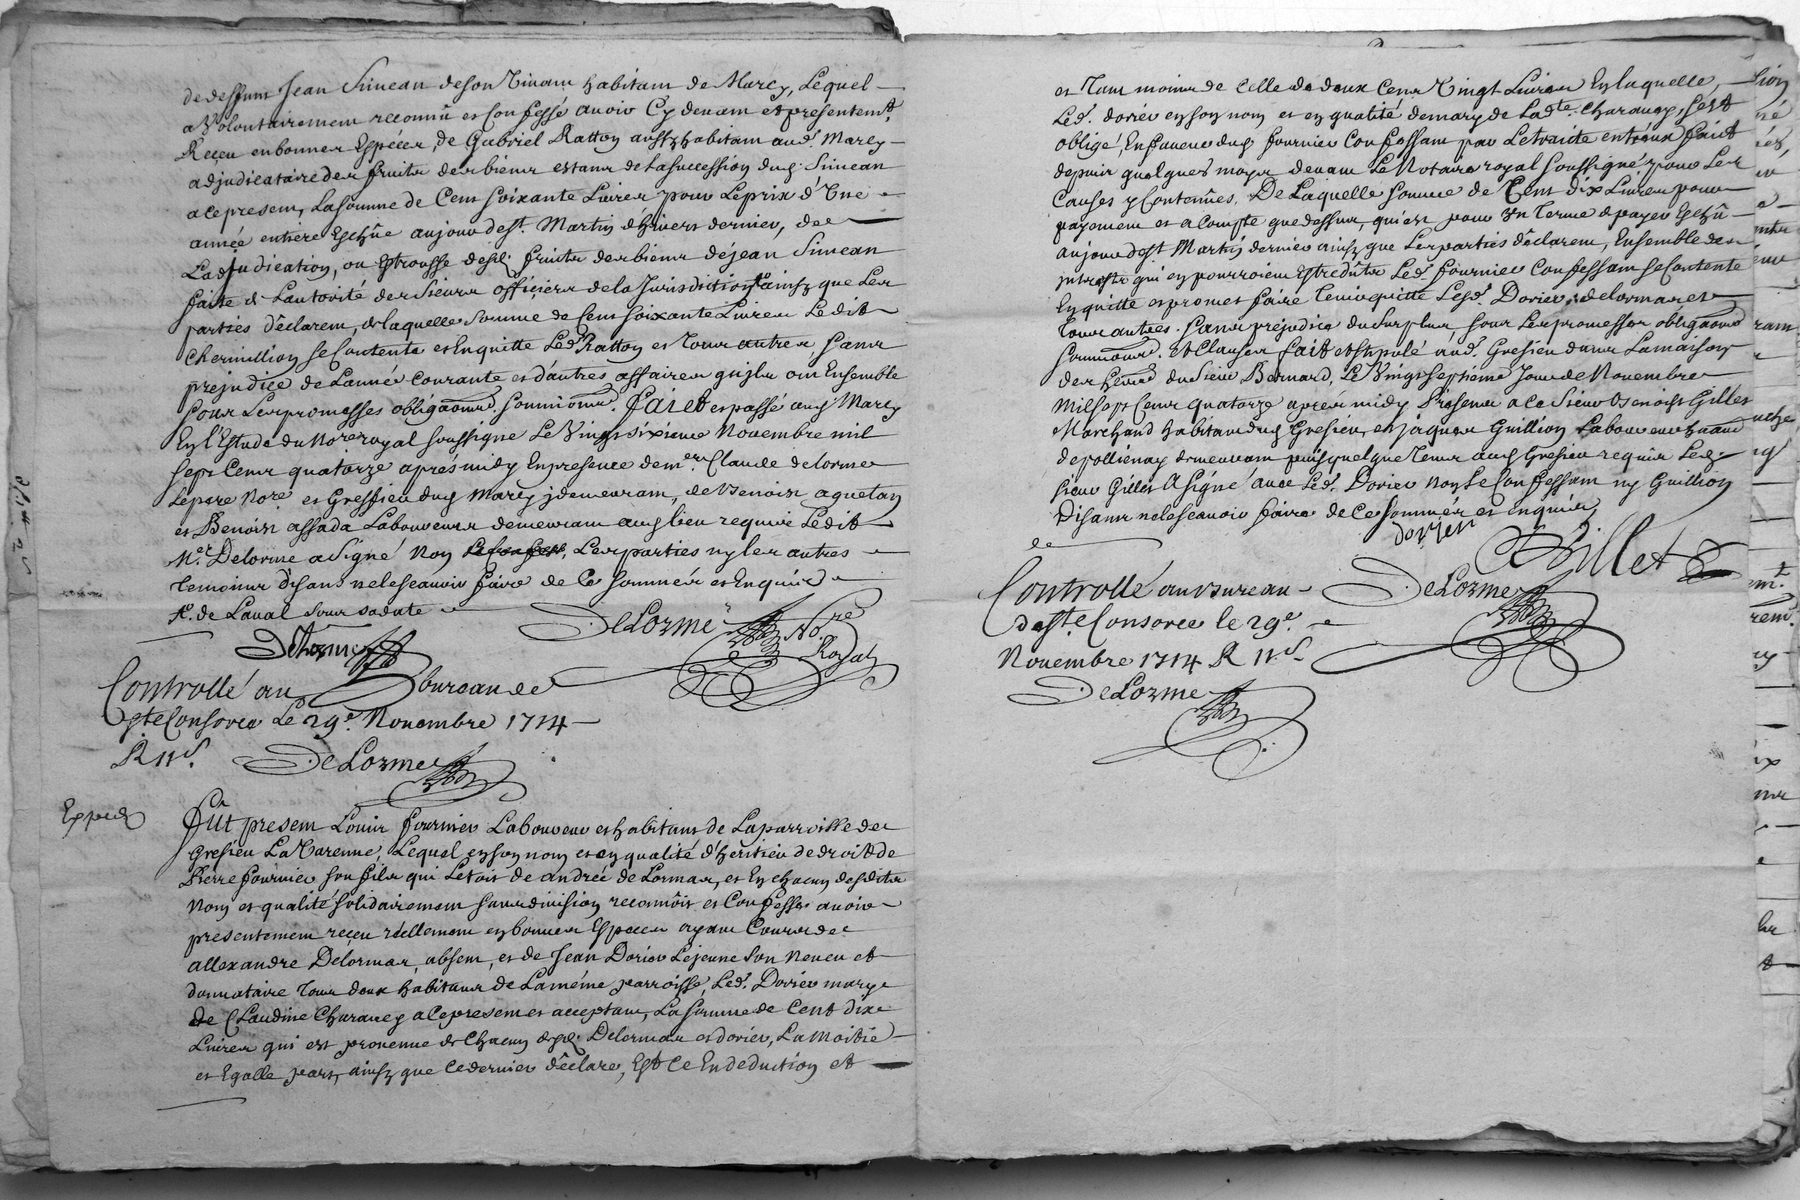 dedeffunt Jean Simean deson Vivant habitant de Marcy, Lequel
a Volontairement reconnû et Confessé auoir Cydeuant et présentemt
Reçeu en bonnes Espéces, de Gabriel Ratton aussy habitant aud. Marcy
adjudicataire des fruits des biens estans de la succession dud. Simean
a ce present, La somme de Cent soixante Livres pour Le prix d'Vne
année entiere Escheüe au jour de st. Martin d'hiuert dernier, de
L'adjudication, ou Estrousse desd. fruits des biens de jean Simean
faite de L'autorité des Sieurs officiers de la Jurisdiction ainsy que Les
parties déclarent, de laquelle somme de Cent soixante Livres Ledit
Chermillion se Contente et En quitte Led. Ratton et tous autres, sans
prejudice de L'année Courante et d'autres affaires qu'jls ont Ensemble
sous Les promesses obligaons. soumions. Fait et passé aud. Marcy
En l'Estude du Nore royal soussigné Le Vingt sixieme Nouembre mil
sept Cens quatorze aprés midy En presence de me. Claude delorme
Le pere Nore. et Greffier dud. Marcy y demeurant, de Benoist aquetan
et Benoist assada Laboureurs demeurans aud. lieu requis Ledit
Mer Delorme a signé Non Les parties ny les autres
temoins disans ne le scauoir faire de Ce sommés et Enquis
de Laual sous sadate
DeLorme DeLorme Nore Royal
Controllé au bureau de
ste Consorce Le 29e. Nouembre 1714
R 11s.
DeLorme
Exped
Fût present Louis fournier Laboureur et habitant de La parroisse de
Gresieu La Varenne, Lequel en son nom et en qualité d'héritier de droit de
Pierre fournier son fils qui L'etoit de andrée de Lormas, et En chacun desdits
Nom et qualité solidairement sans diuision reconnoist et Confesse auoir
presentement reçeu réellement en bonnes Especes ayant Cours de
allexandre Delormas, absent, et de Jean Dorier Le jeune son Neueu et
donnataire tous deux habitans de La méme parroisse, Led. Dorier mary
de Claudine Charauey a ce present et acceptant, La somme de Cent dix
Livres qui est prouenue de Chacun desd. Delormas et dorier, La moitié
et Egalle part, ainsy que ce dernier déclare, Est Ce En deduction et
et tant moins de Celle de deux Cens Vingt Livres En laquelle,
Led. dorier en son nom et en qualité de mary de Ladte. charauey, s'est
obligé, En faueur dud. fournier Confessant par Le traité entr'eux fait
depuis quelques moys deuant Le Notaire royal soussigné pour Les
Causes y Contenües. De Laquelle somme de Cent dix Livres pour
payement et a Compte que dessus, qui est pour Vn terme a payer Escheû
au jour de st. Martin dernier ainsy que Les parties déclarent, Ensemble des
jnterests qui en pourroient Estre deûts Led. fournier Confessant se Contente
En quitte et promet faire tenir quitte Lesd. Dorier, delormas et
tous autres, sans préjudice du surplus sous Les promesses obligaons
soumions. et Clauses fait et stipulé aud. Gresieu dans La maison
des heirs du sieur Bernard, Le Vingt septiéme Jour de Nouembre
Mil sept Cens quatorze aprés midy Présens a ce sieur Benoist Gillet
Marchand habitant dud. Gresieu, et jaques Guillion Laboureur
de pollienay demeurant puis quelque tems aud. Gresieu requis Led.
sieur Gillet a signé auec Led. Dorier Non Le Confessant ny Guillion
disans ne le scauoir faire de Ce sommés et Enquis
dorjer Gillet
Controllé au bureau
de ste. Consorce le 29e.
Nouembre 1714 R 11s
DeLorme
DeLorme